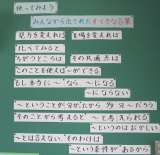 使ってみよう
みんなから出てきたすてきな言葉
見方を変えれば 言葉を変えれば
比べてみると
ちがうところは その共通点は
このことを使えば〜ができる
もし本当に〜なら 〜になる
〜にならない
〜ということが分かったから
そのことから考えると 〜と考えられる
〜というのはおかしい
〜とは言えない そのわけは
〜という条件があるから